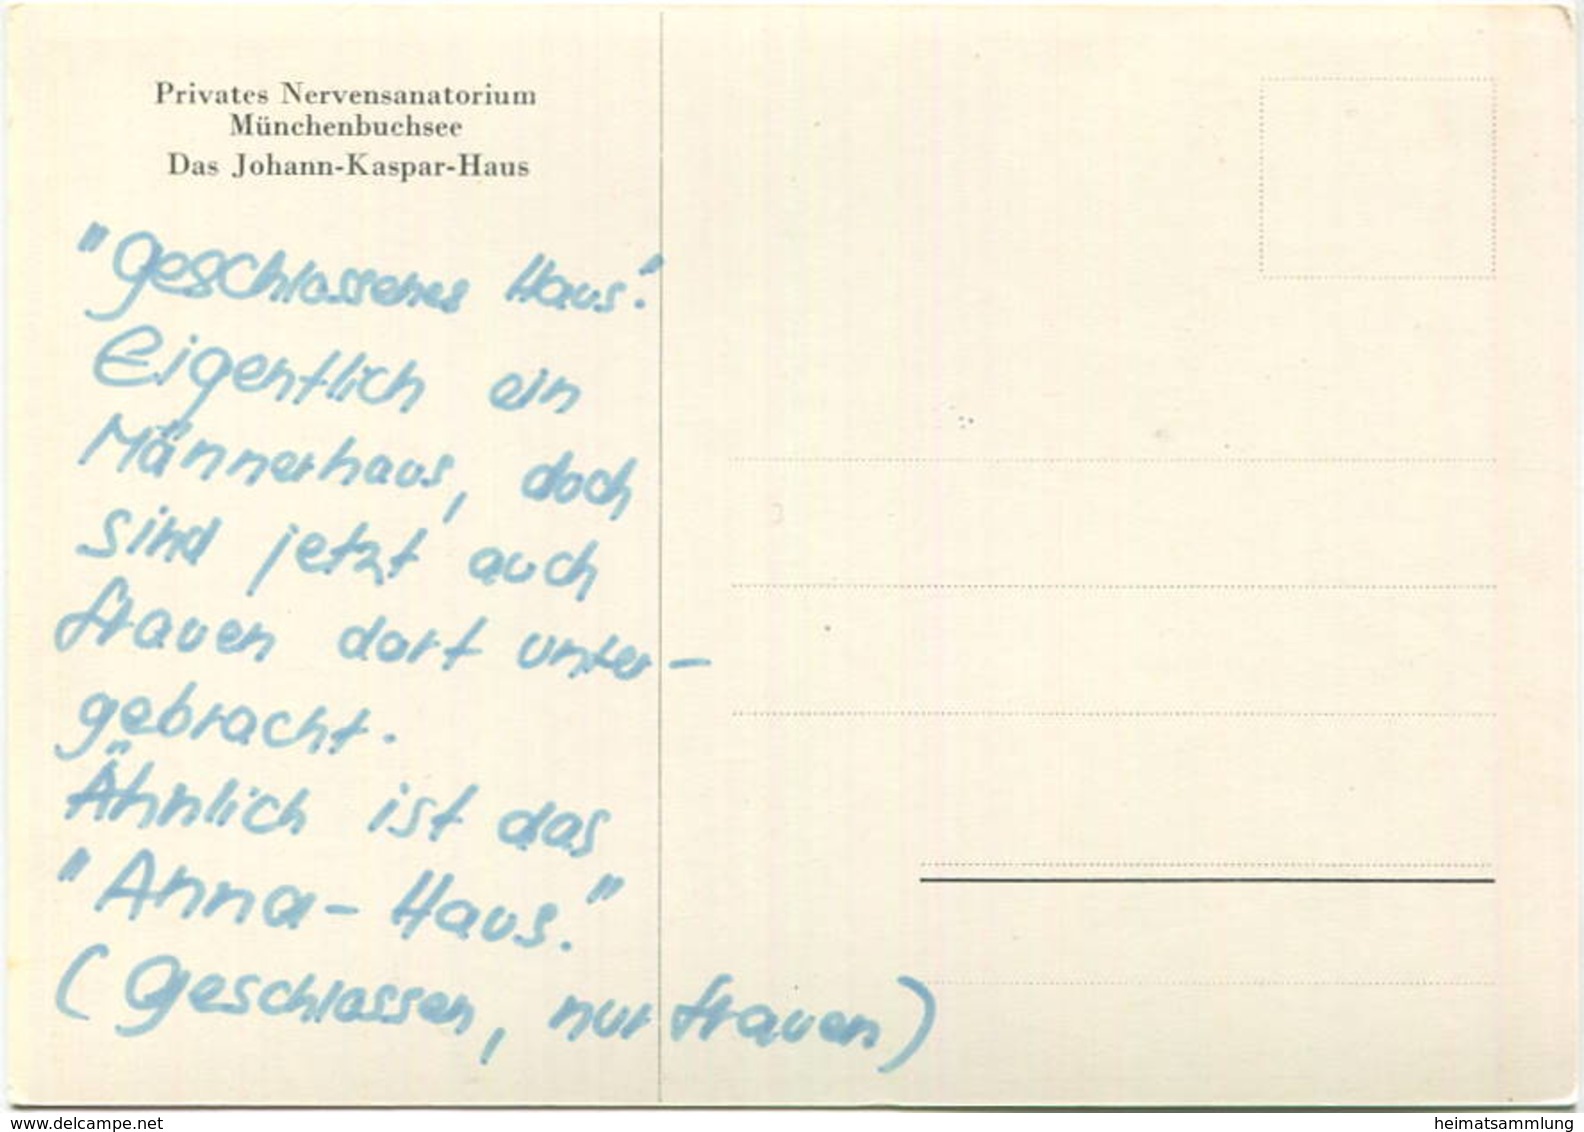 Privates Nervensanatorium
Münchenbuchsee
Das Johann-Kaspar-Haus
"Geschlossenes Haus."
Eigentlich ein
Männerhaus, doch
sind jetzt auch
Frauen dort unter-
gebracht.
Ähnlich ist das
"Anna-Haus."
(Geschlossen, nur Frauen)
www.delcampe.net
heimatsammlung